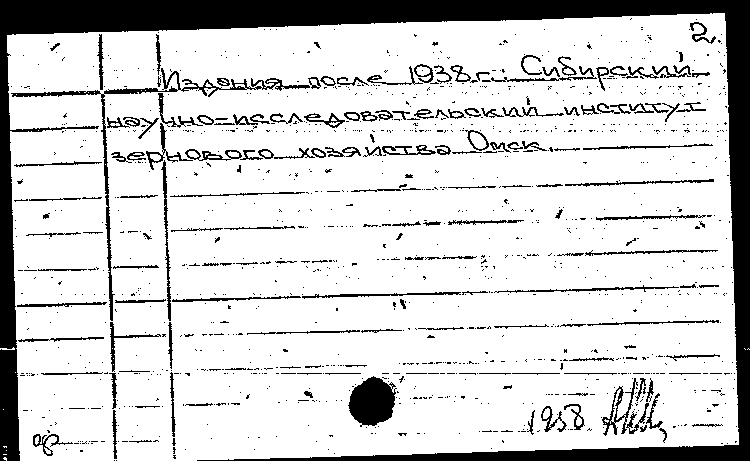 2.
Издания после 1938 г.: Сибирский
научно-исследовательский институт
зернового хозяйства Омск.
1958
ор